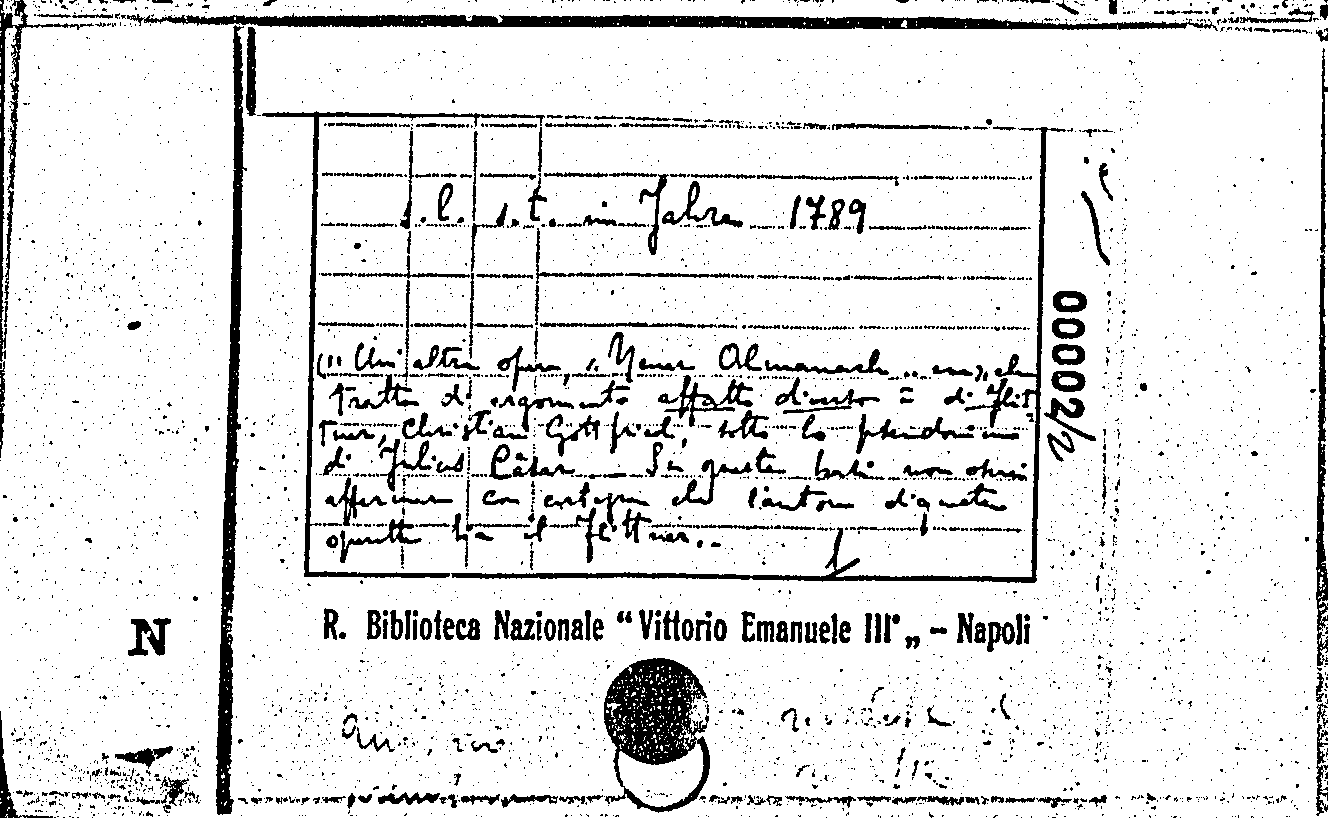 s.l. s.t. im Jahre 1789
(1) Un' altra opera, "Neuer Almanach" ecc., che
tratta di argomento affatto diverso è di Flit
tner, Christian Gottfried, sotto lo pseudonimo
di Julius Cäsar. Su questa base non oserei
affermare con certezza che l'autore di questa
operetta sia il Flittner..
R. Biblioteca Nazionale "Vittorio Emanuele III" „ - Napoli
00002/2
N